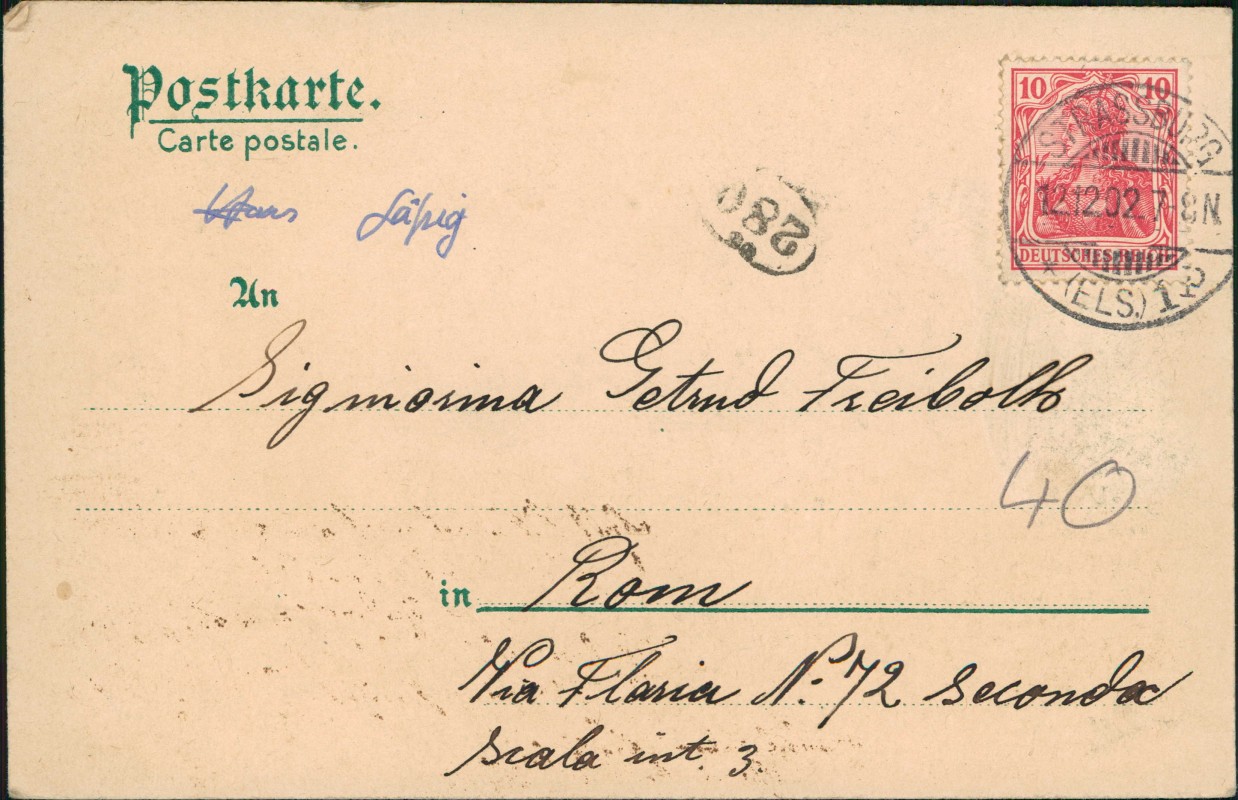 Postkarte.
Carte postale.
An
Signiorina Getrud Freiboth
in Rom
Via Flaria No. 72 seconda
scala int. 3.
40
280
10 10
DEUTSCHES REICH
STRASSBURG
12.12.02. 7-8N
* (ELS.) 1